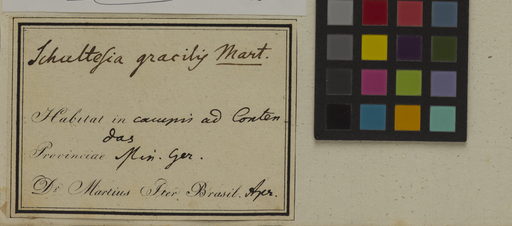 Schultesia gracilis Mart.
Habitat in campis ad Conten-
das
Provinciae Min. Ger.
Dr Martius Iter Brasil. Apr.